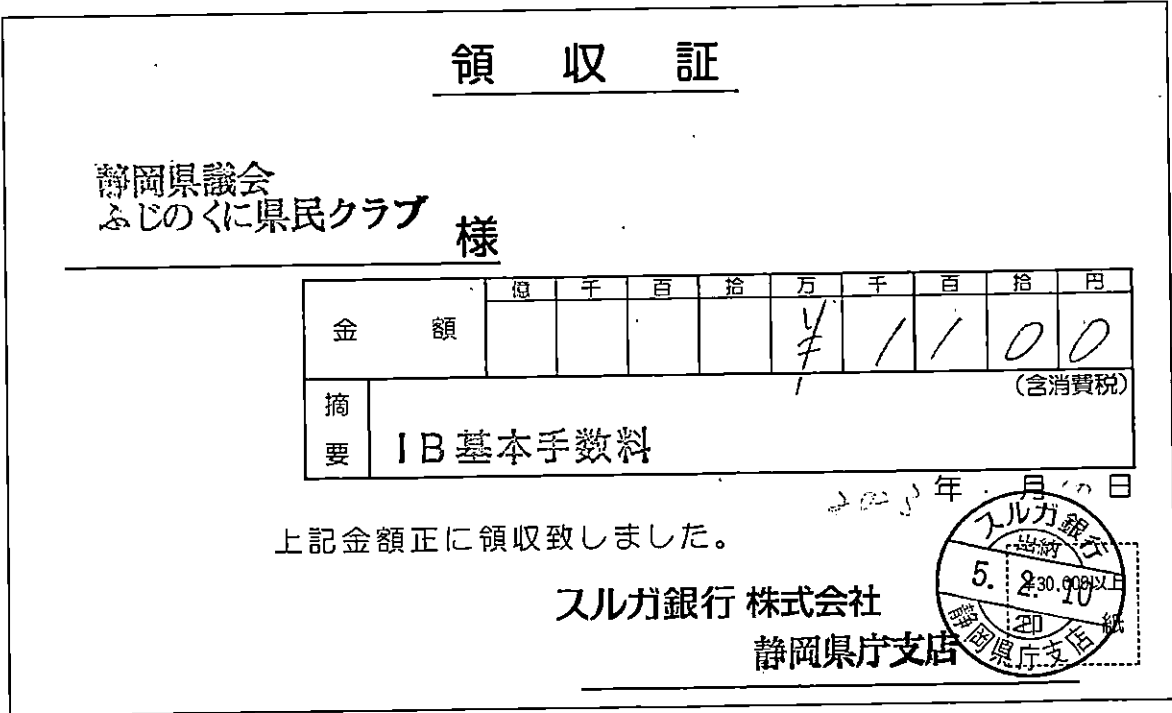 領収証
静岡県議会
ふじのくに県民クラブ 様
億 千 百 拾 万 千 百 拾 円
金額 ¥ 1 1 0 0
(含消費税)
摘要 IB基本手数料
年 月 日
上記金額正に領収致しました。
スルガ銀行 株式会社
静岡県庁支店
スルガ銀行
出納
5. 2. 10
印
静岡県庁支店
¥30.000以上
紙